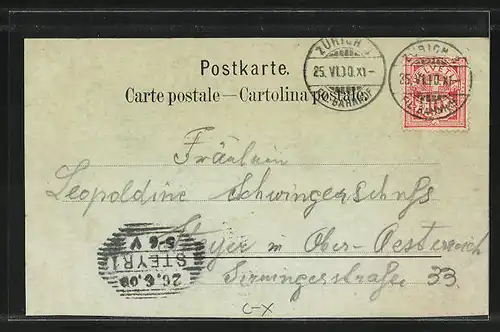 Postkarte.
Carte postale—Cartolina postale.
ZÜRICH
25.VI.00.XI–
BAHNHOF
ZÜRICH
25.VI.00.XI–
BAHNHOF
HELVETIA
Fräulein
Leopoldine
Steyer in Ober-Oesterreich
Sirningerstraße 33
STEYR 1
26.6.00
5-6 V
C-X